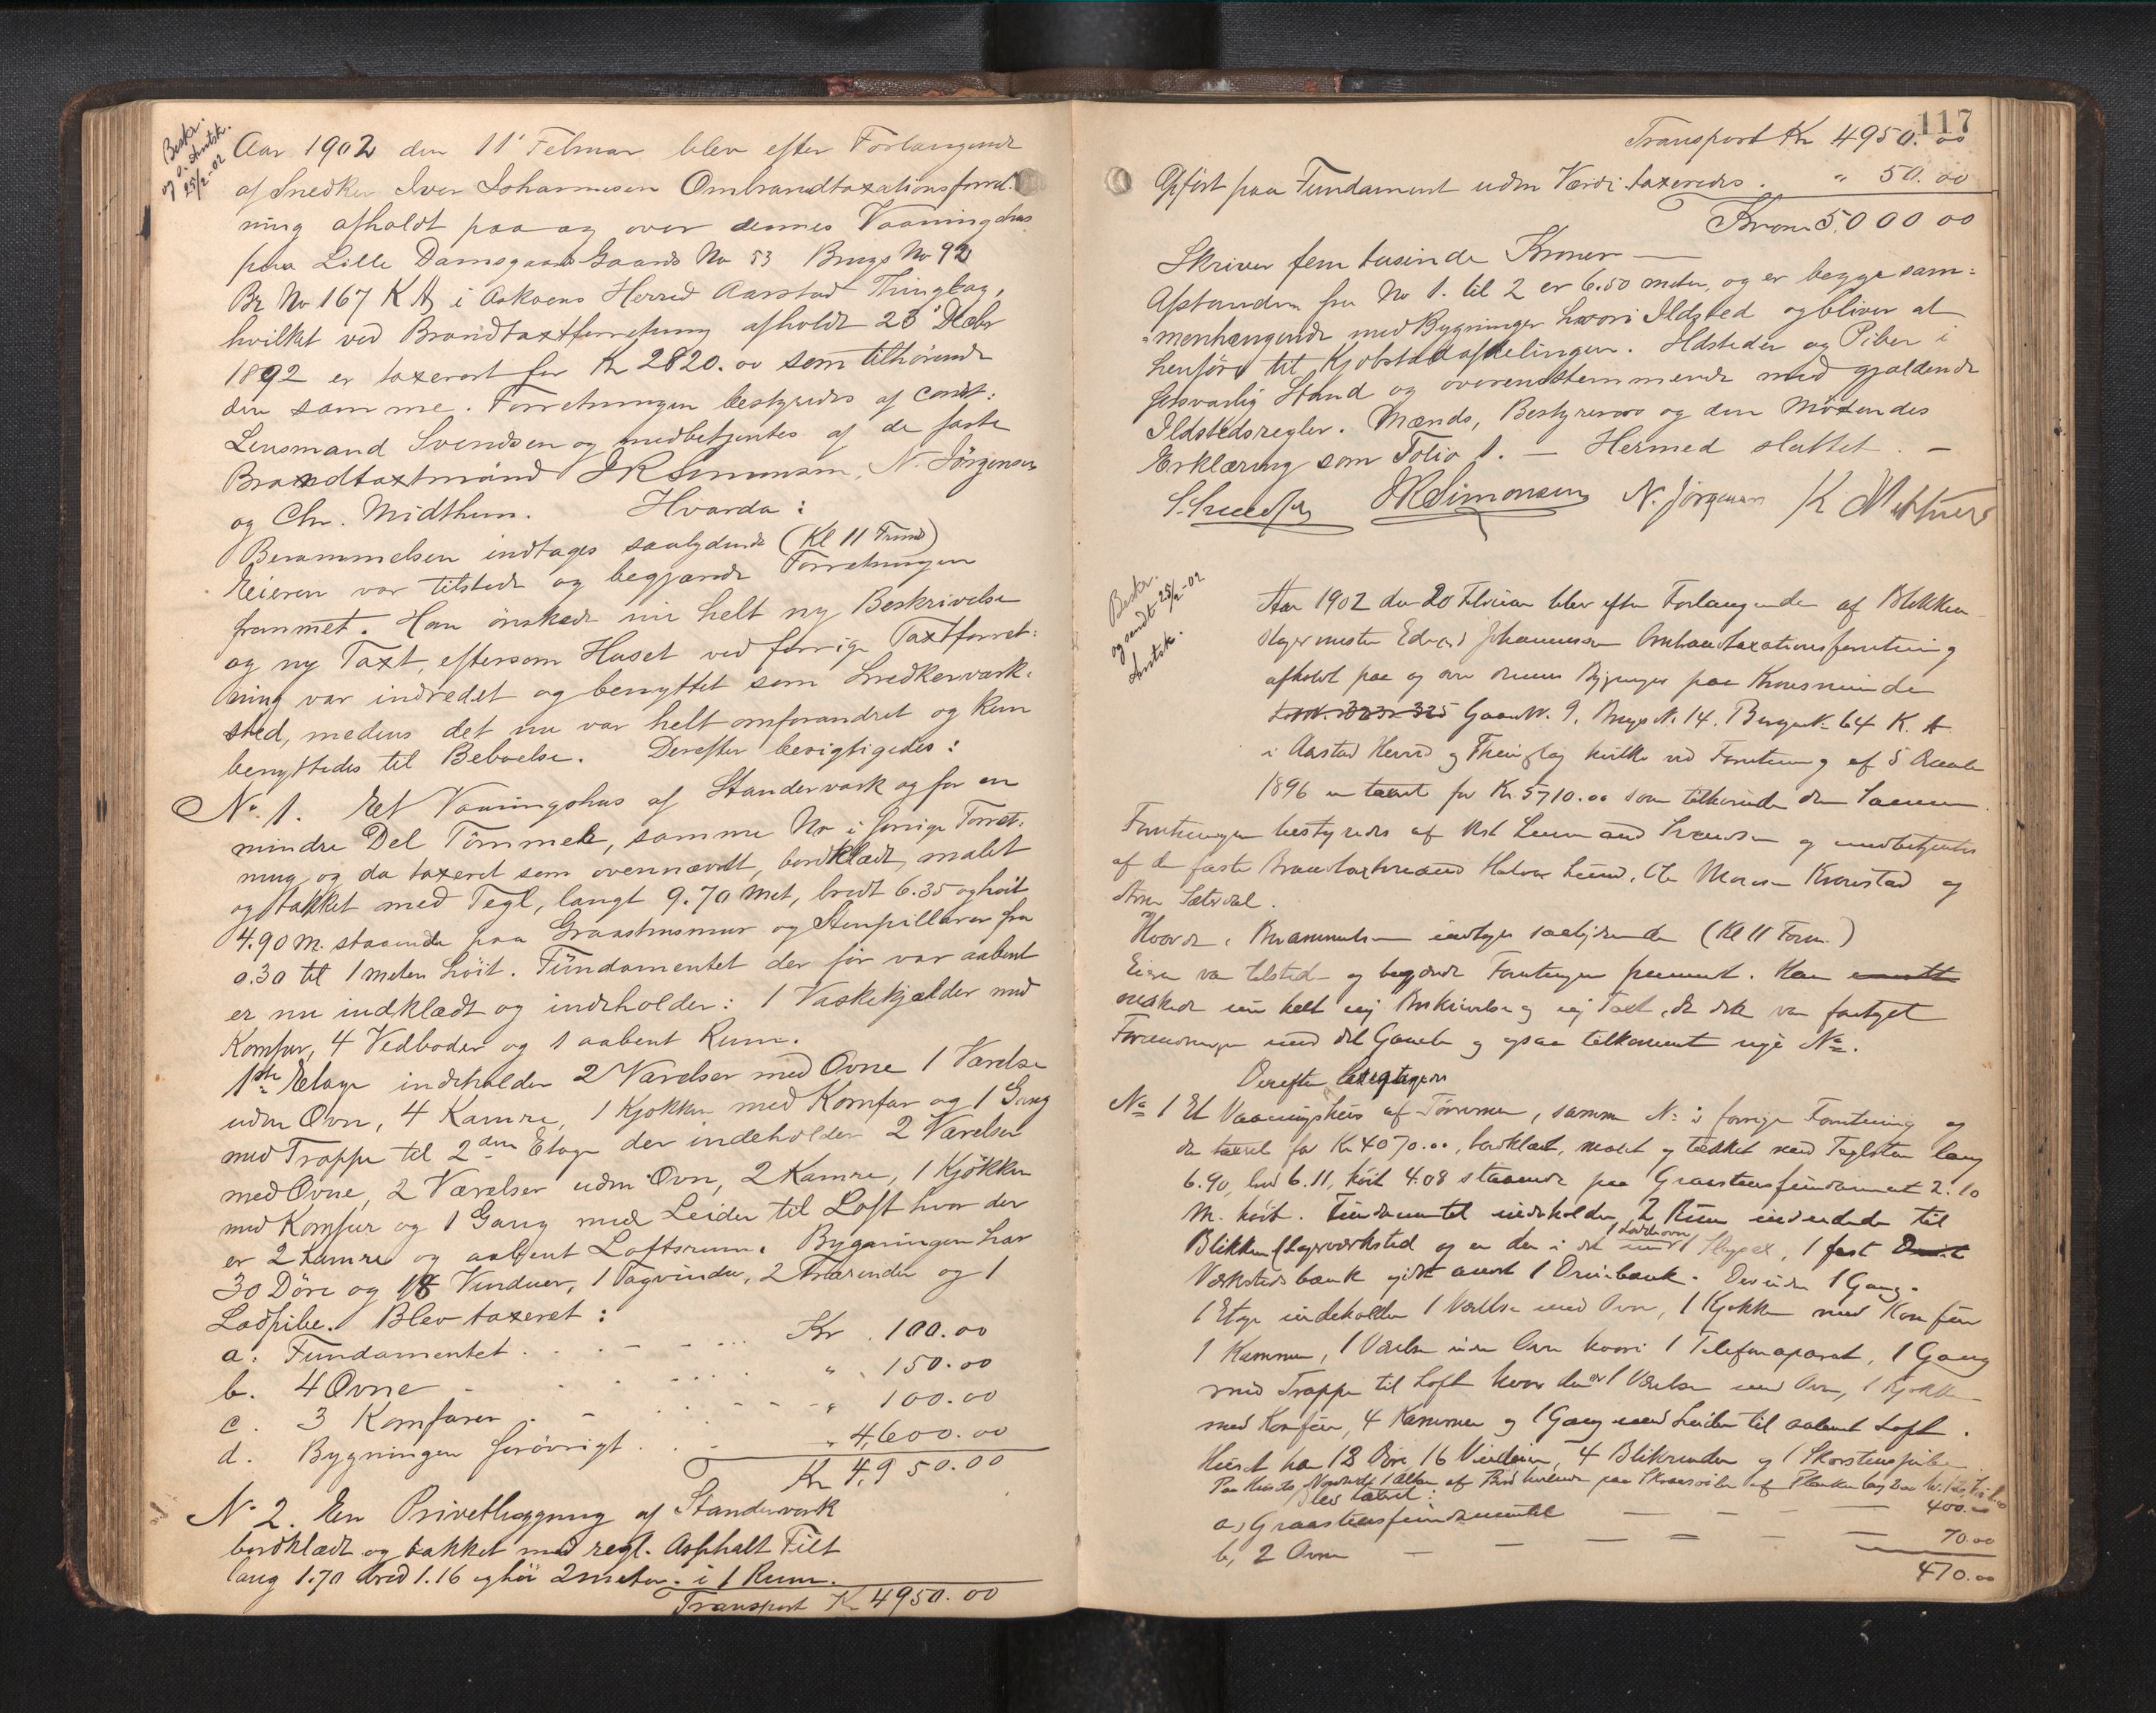 Beskr.
og o. Amtsk.
25/2-02
Aar 1902 den 11' Februar blev efter Forlangende
af Snedker Iver Johannesen Ombrandtaxationsforret-
ning afholdt paa og over dennes Vaaningshus
paa Lille Damsgaard Gaards No 53 Brugs No 92
Br No 167 K A i Askøens Herred Aarstad Thinglag,
hvilket ved Brandtaxtforretning afholdt 23' Decbr
1892 er taxeret for Kr 2820.00 som tilhørende
den samme. Forretningen bestyredes af const:
Lensmand Svendsen og medbetjentes af de faste
Brandtaxtmænd J R Simonsen, N. Jörgensen
og Chr. Midthun. Hvorda:
Berammelsen indtages saalydende (Kl 11 Form)
Eieren var tilstede og begjærede Forretningen
fremmet. Han önskede nu helt ny Beskrivelse
og ny Taxt, eftersom Huset ved forrige Taxtforret:
ning var indredet og benyttet som Snedkerværk:
sted, medens det nu var helt omforandret og kun
benyttedes til Beboelse. Derefter besigtigedes:
No 1. Et Vaaningshus af Standerværk og for en
mindre Del Tömmer, samme No i forrige Forret:
ning og da taxeret som ovennævnt, bordklædt, malet
og takket med Tegl, langt 9.70 Met, bredt 6.35 og höit
4.90 M. staaende paa Graastensmur og Stenpillarer fra
0.30 til 1 meter höit. Fundamentet der för var aabent
er nu indklædt og indeholder: 1 Vaskekjælder med
Komfur, 4 Vedboder og 1 aabent Rum.
1ste Etage indeholder 2 Værelser med Ovne 1 Værelse
uden Ovn, 4 Kamre, 1 Kjøkken med Komfur og 1 Gang
med Trappe til 2den Etage der indeholder 2 Værelser
med Ovne, 2 Værelser uden Ovn, 2 Kamre, 1 Kjökken
med Komfur og 1 Gang med Leider til Loft hvor der
er 2 Kamre og aabent Loftsrum. Bygningen har
30 Döre og 18 Vinduer, 1 Tagvindu, 2 Trærender og 1
Ladpibe. Blev taxeret:
a: Fundamentet Kr. 100.00
b. 4 Ovne " 150.00
c. 3 Komfurer " 100.00
d. Bygningen forövrigt " 4,600.00
Kr 4,950.00
No 2. En Privetbygning af Standerværk
bordklædt og takket med regl. Asphalt Filt
lang 1.70 bred 1.16 og höi 2 meter. i 1 Rum.
Transport Kr 4950.00
117
Transport Kr 4950.00
Opfört paa Fundament uden Værdi taxeredes. " 50.00
Kroner 5.000 00
Skriver fem tusinde Kroner —
Afstanden fra No 1. til 2 er 6.50 meter, og er begge sam:
menhængende med Bygninger hvori Ildsted og bliver at
henföre til Kjöbstadafdelingen. Ildsteder og Piber i
forsvarlig Stand og overensstemmende med gjældende
Ildstedsregler. Mænds, Bestyreres og den Mödendes
Erklæring som Folio 1. — Hermed sluttet. —
S. Svendsen J R Simonsen N. Jörgensen K Midthun
Beskr.
og sendt 25/2-02
Amtsk.
Aar 1902 den 20 Februar blev efter Forlangende af Blikken
slagermester Edvard Johannesen Ombrandtaxationsforretning
afholdt paa og over dennes Bygninger paa Kronsminde
Gaards N. 9, Brugs N. 14. Bergens N. 64 K. A
i Aarstad Herred og Thinglag hvilke ved Forretning af 5 Decbr
1896 er taxeret for Kr. 5710.00 som tilhørende den Samme.
Forretningen bestyredes af Kst Lensmand Svendsen og medbetjentes
af de faste Brandtaxtmænd Halvor Lund, Ole Monsen Kronstad og
Arne Sætredal.
Hvorda: Berammelsen indtages saalydende (Kl 11 Form.)
Eieren var tilstede og begjærede Forretningen fremmet. Han
önskede nu helt ny Beskrivelse og ny Taxt, da der var foretaget
Forandringer med det Gamle og ogsaa tilkommet nye No.
Derefter besigtigedes
No 1 Et Vaaningshus af Tömmer, samme N. i forrige Forretning og
da taxeret for Kr 4070.00, bordklædt, malet og tækket med Teglsten lang
6.90, bred 6.11, höit 4.08 staaende paa Graastensfundament 2.10
M. höit. Fundamentet indeholder 2 Rum indredede til
Blikkenslagerværksted og er der i det 1 fast
Værkstedsbænk og det andet 1 Dreiebænk. Desuden 1 Gang.
1 Etage indeholder 1 Værelse med Ovn, 1 Kjøkken med Komfur
1 Kammer, 1 Værelse uden Ovn hvori 1 Telefonaparat, 1 Gang
med Trappe til Loft hvor der er 1 Værelse med Ovn, 1 Kjøkken
med Komfur, 4 Kammer og 1 Gang med Leider til aabent Loft.
Huset har 18 Döre, 16 Vinduer, 4 Blikrender og 1 Skorstenspibe.
Paa Husets Nordside 1 Altan af
Blev taxeret:
a, Graastensfundamentet 400.00
b, 2 Ovne 70.00
470.00